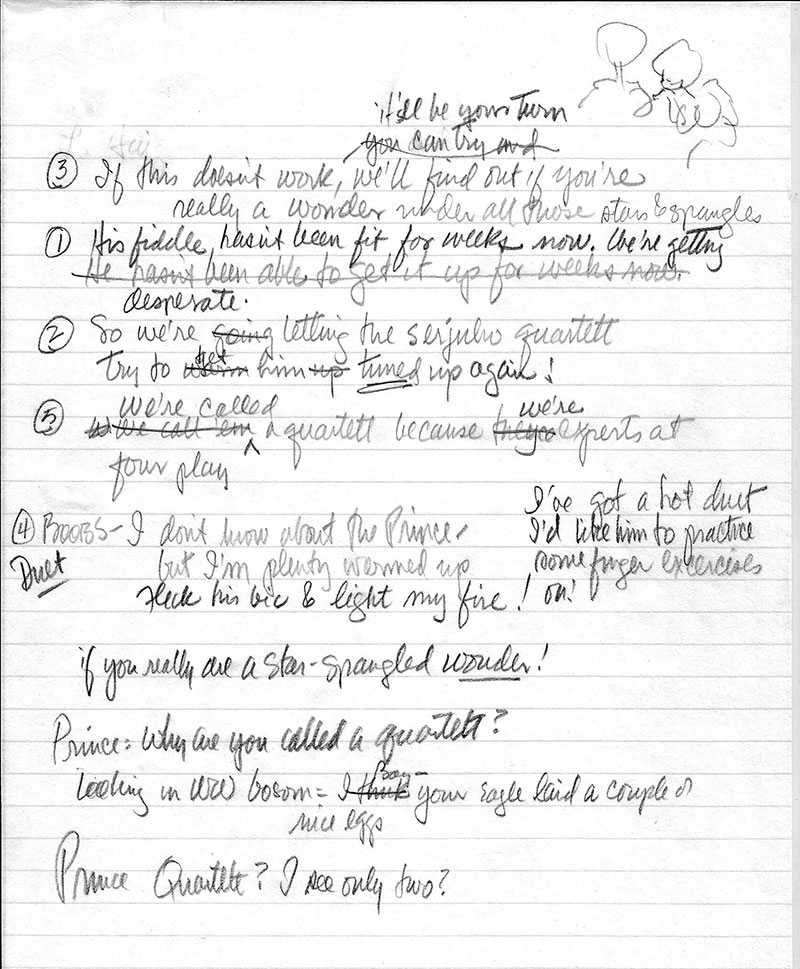 it'll be your turn
you can try and
③ If this doesn't work, we'll find out if you're
really a wonder under all those stars & spangles
① His fiddle hasn't been fit for weeks now. We're getting
He hasn't been able to get it up for weeks now.
desperate.
② So we're going letting the quartett
get
try to him up tuned up again!
we're called we're
⑤ we call 'em a quartett because they're experts at
four play
④ BOOBS - I don't know about the Prince,
Duet but I'm plenty warmed up
Flick his bic & light my fire!
I've got a hot duet
I'd like him to practice
some finger exercises
on!
if you really are a star-spangled wonder!
Prince: Why are you called a quartett?
Boy-
looking in WW bosom = I think your Eagle laid a couple of
nice eggs
Prince Quartett? I see only two?